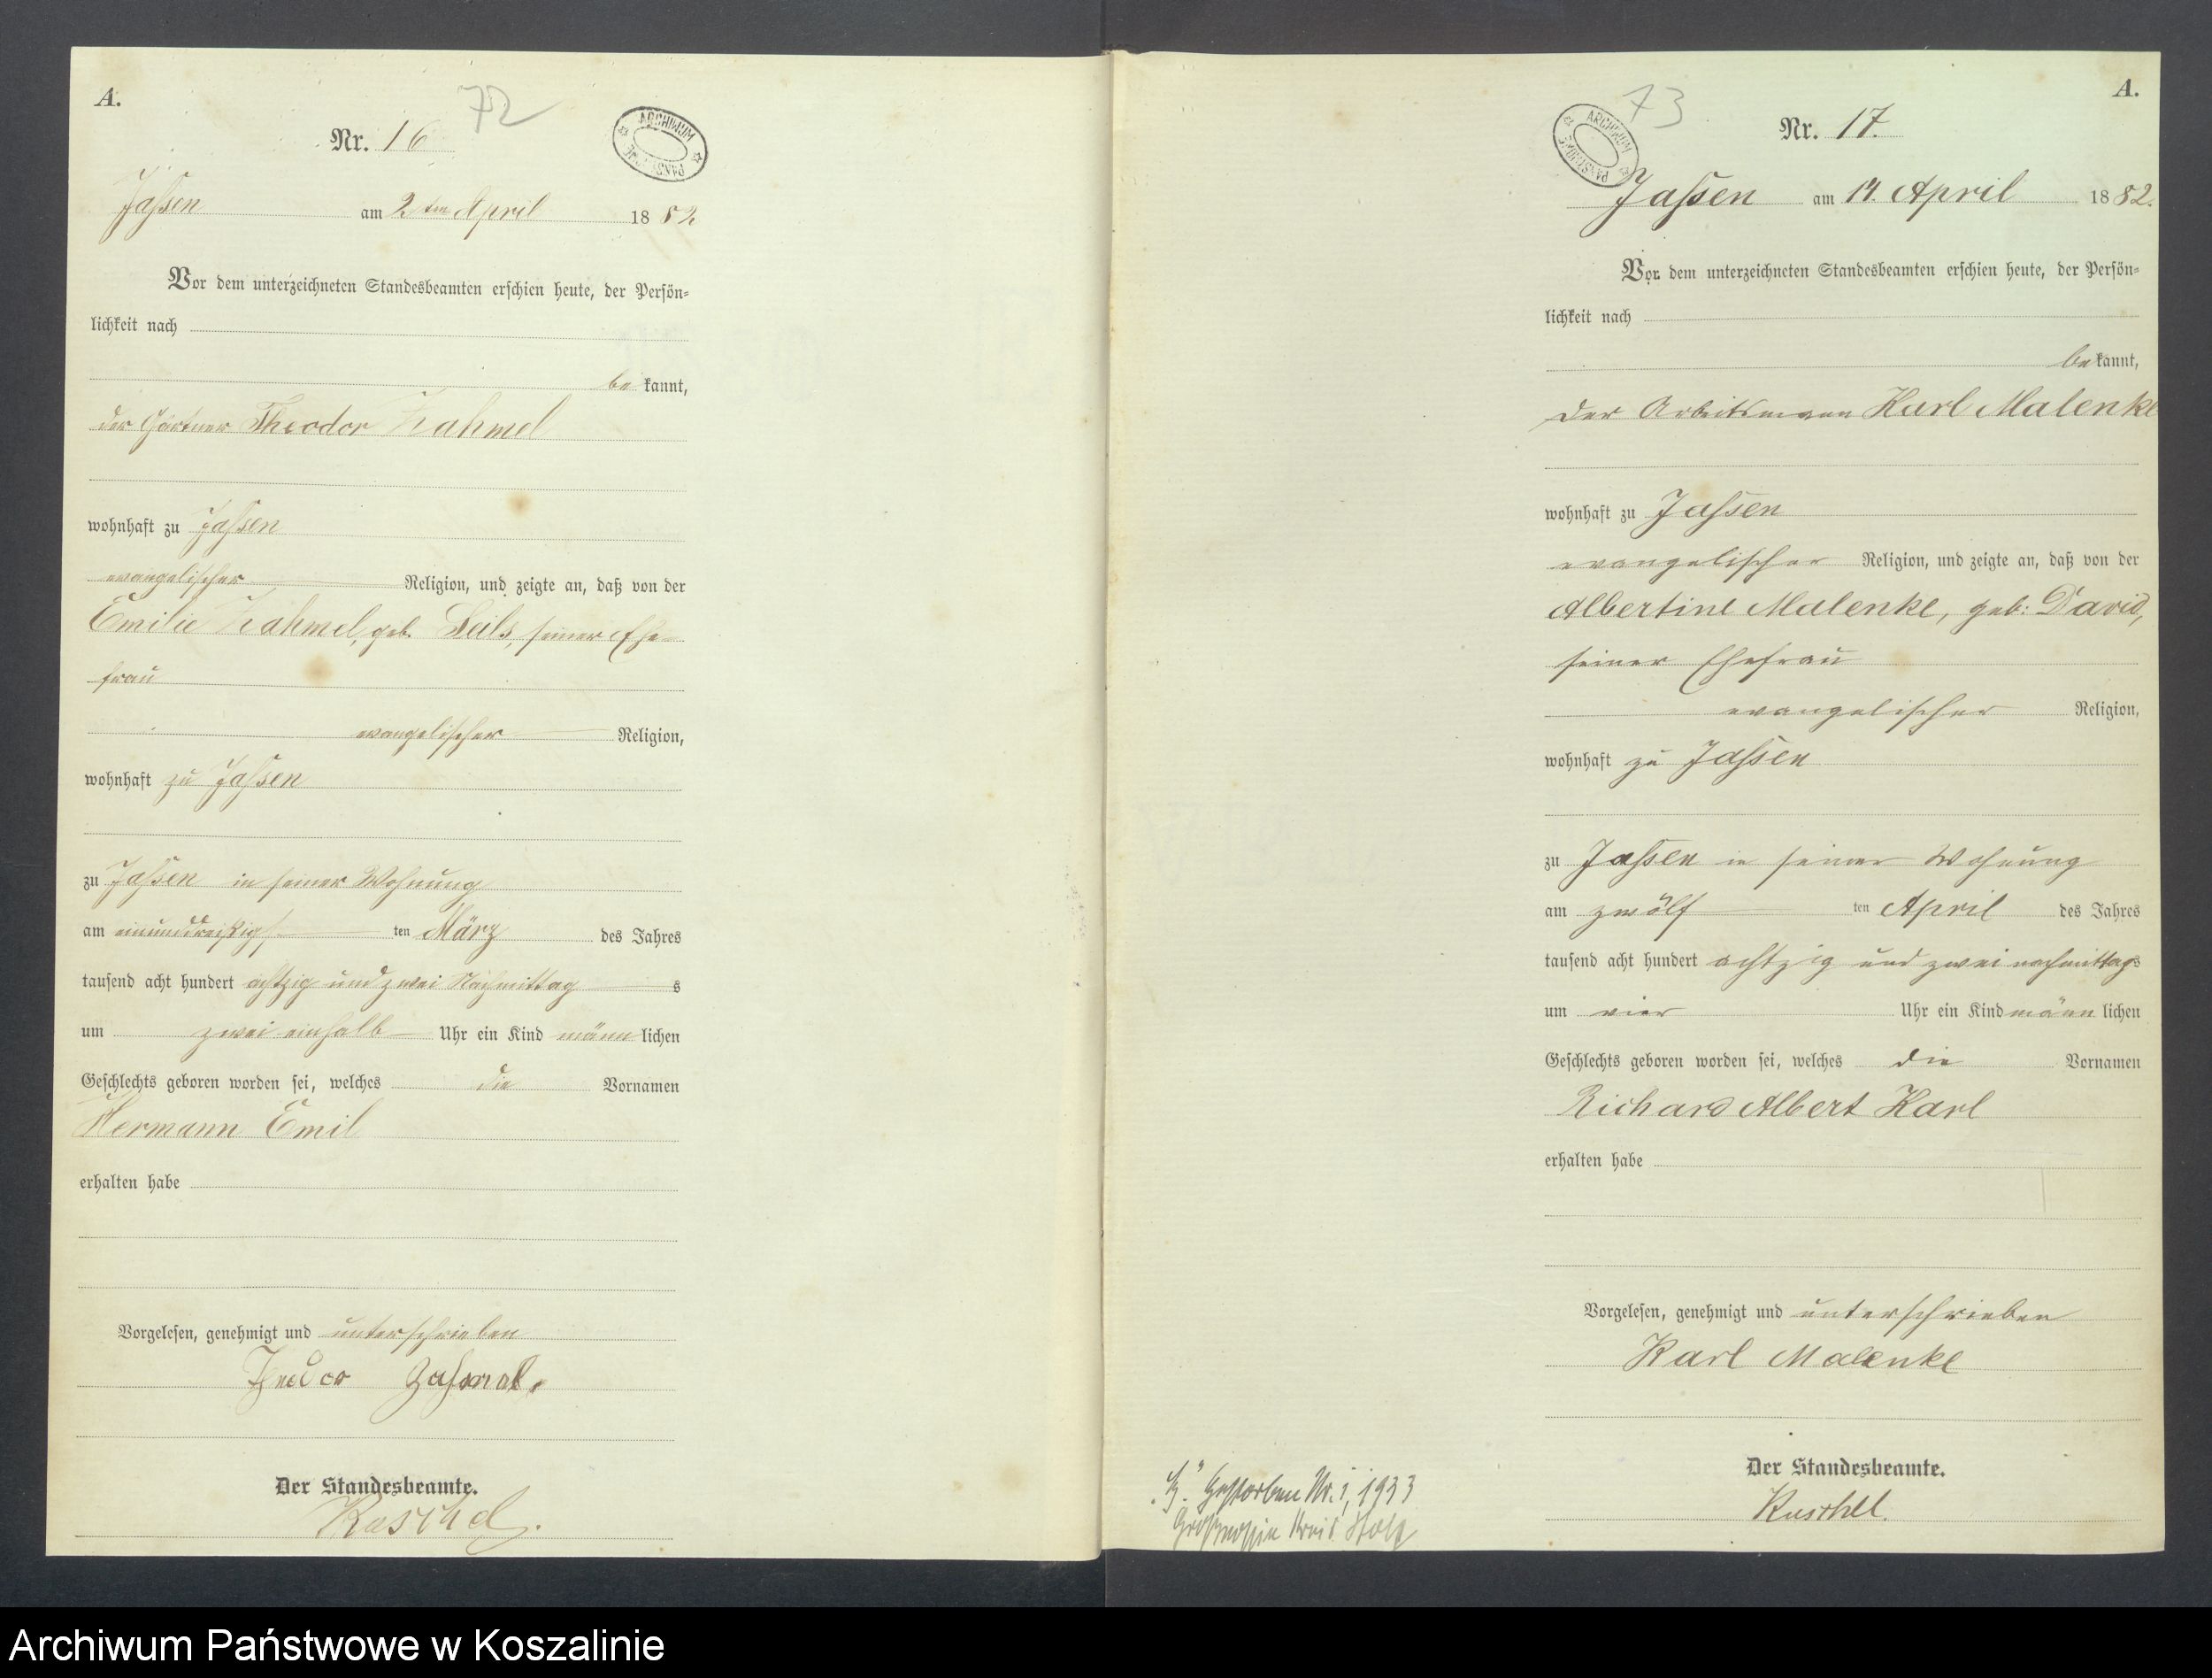 A.
72
Nr. 16
ARCHIWUM PAŃSTWOWE
Jassen am 2ten April 1882
Vor dem unterzeichneten Standesbeamten erschien heute, der Persön=
lichkeit nach
be kannt,
der Gärtner Theodor Zahmel
wohnhaft zu Jassen
evangelischer Religion, und zeigte an, daß von der
Emilie Zahmel, geb. Seils, seiner Ehe-
frau
evangelischer Religion,
wohnhaft zu Jassen
zu Jassen in seiner Wohnung
am einunddreißigsten März des Jahres
tausend acht hundert achtzig und zwei Nachmittags
um zwei einhalb Uhr ein Kind männlichen
Geschlechts geboren worden sei, welches die Vornamen
Hermann Emil
erhalten habe
Vorgelesen, genehmigt und unterschrieben
Theodor Zahmel.
Der Standesbeamte.
Kuschel.
A.
73
Nr. 17.
ARCHIWUM PAŃSTWOWE
Jassen am 14. April 1882.
Vor dem unterzeichneten Standesbeamten erschien heute, der Persön=
lichkeit nach
be kannt,
der Arbeitsmann Karl Malenke
wohnhaft zu Jassen
evangelischer Religion, und zeigte an, daß von der
Albertine Malenke, geb: David,
seiner Ehefrau
evangelischer Religion,
wohnhaft zu Jassen
zu Jassen in seiner Wohnung
am zwölften April des Jahres
tausend acht hundert achtzig und zwei nachmittags
um vier Uhr ein Kind männlichen
Geschlechts geboren worden sei, welches die Vornamen
Richard Albert Karl
erhalten habe
Vorgelesen, genehmigt und unterschrieben
Karl Malenke
Der Standesbeamte.
Kuschel.
Gestorben Nr. 1, 1933
Kreis Stolp
Archiwum Państwowe w Koszalinie